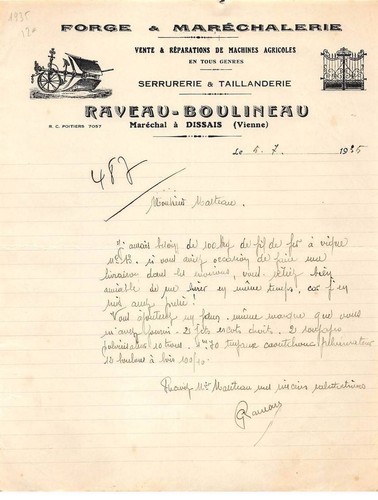 1935
FORGE & MARÉCHALERIE
VENTE & RÉPARATIONS DE MACHINES AGRICOLES
EN TOUS GENRES
SERRURERIE & TAILLANDERIE
RAVEAU-BOULINEAU
Maréchal à DISSAIS (Vienne)
R. C. POITIERS 7057
Le 6. 7. 1935
487
Monsieur
J'aurais besoin de 100 kg de fil de fer à vigne
si vous aviez occasion de faire une
livraison dans les environs, vous seriez bien
aimable de me livrer en même temps, car j'en
suis assez pressé !
Vous ajouterez même marque que vous
m'avez fourni. 2 droit. 2
caoutchouc
10 boulons à bois 100/10
Recevez Mr mes sincères salutations
Raveau